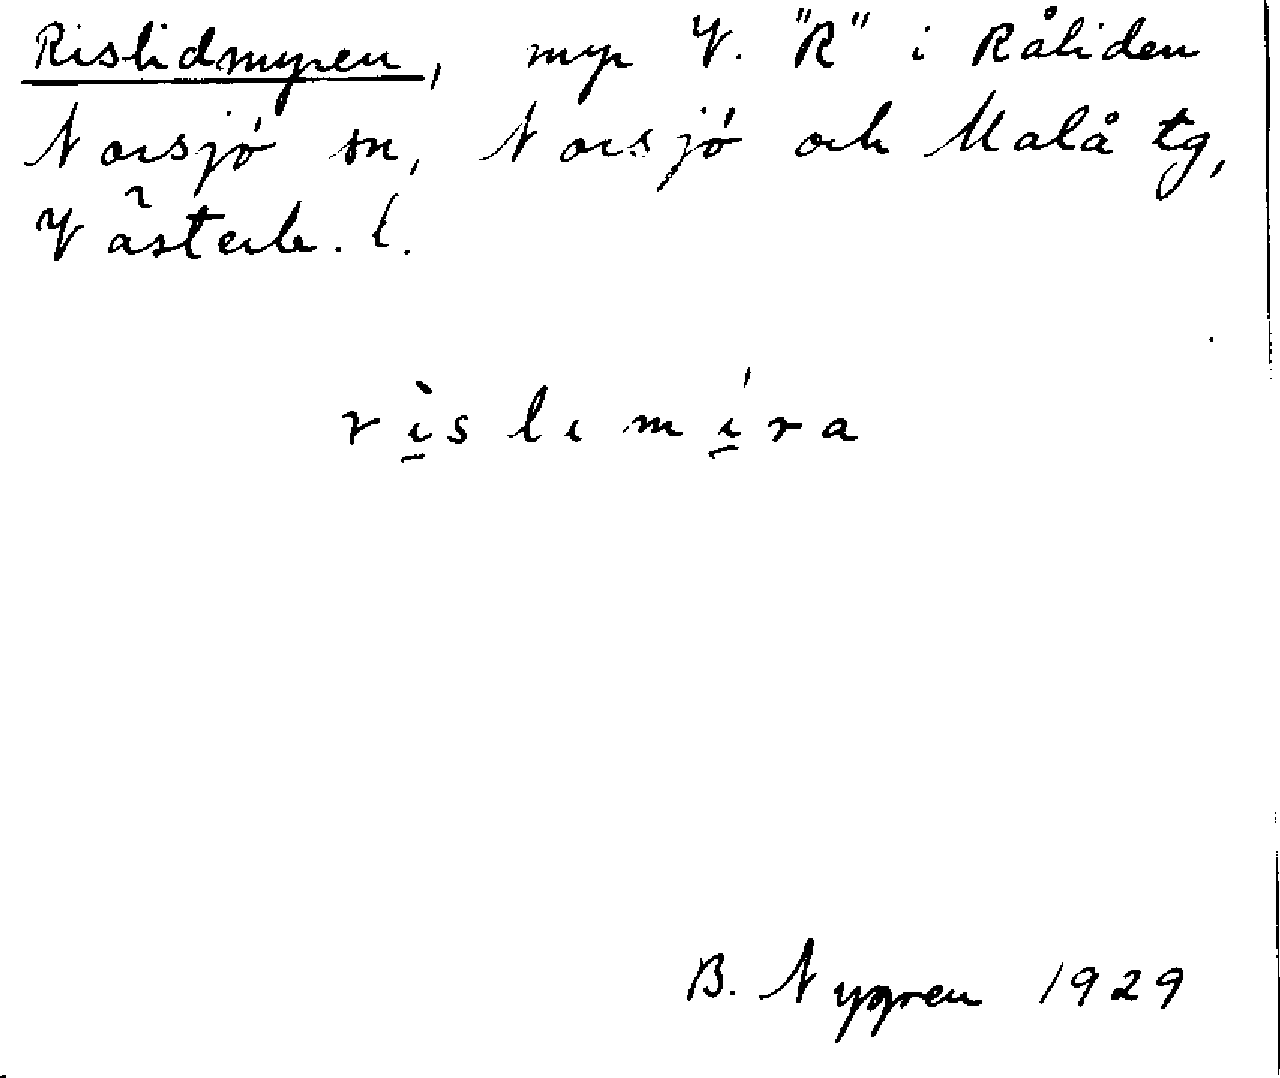 Rislidmyren, myr V. "R" i Råliden
Norsjö sn, Norsjö och Malå tg,
Västerb. l.
rì̲slɩmí̲ra
B. Nygren 1929